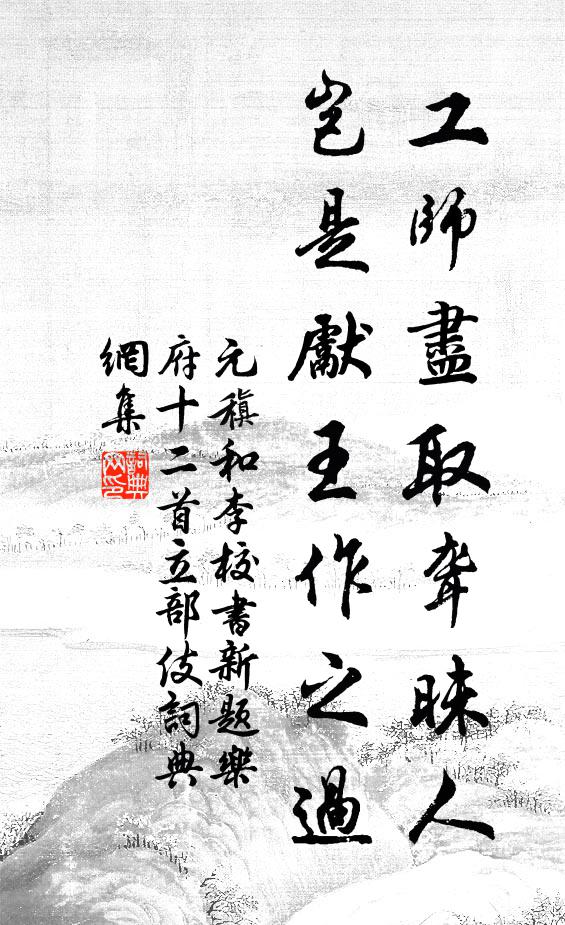 工師盡取聾昧人
豈是獻王作之過
元稹和李校書新題樂
府十二首立部伎詞典
網集
詞典网印